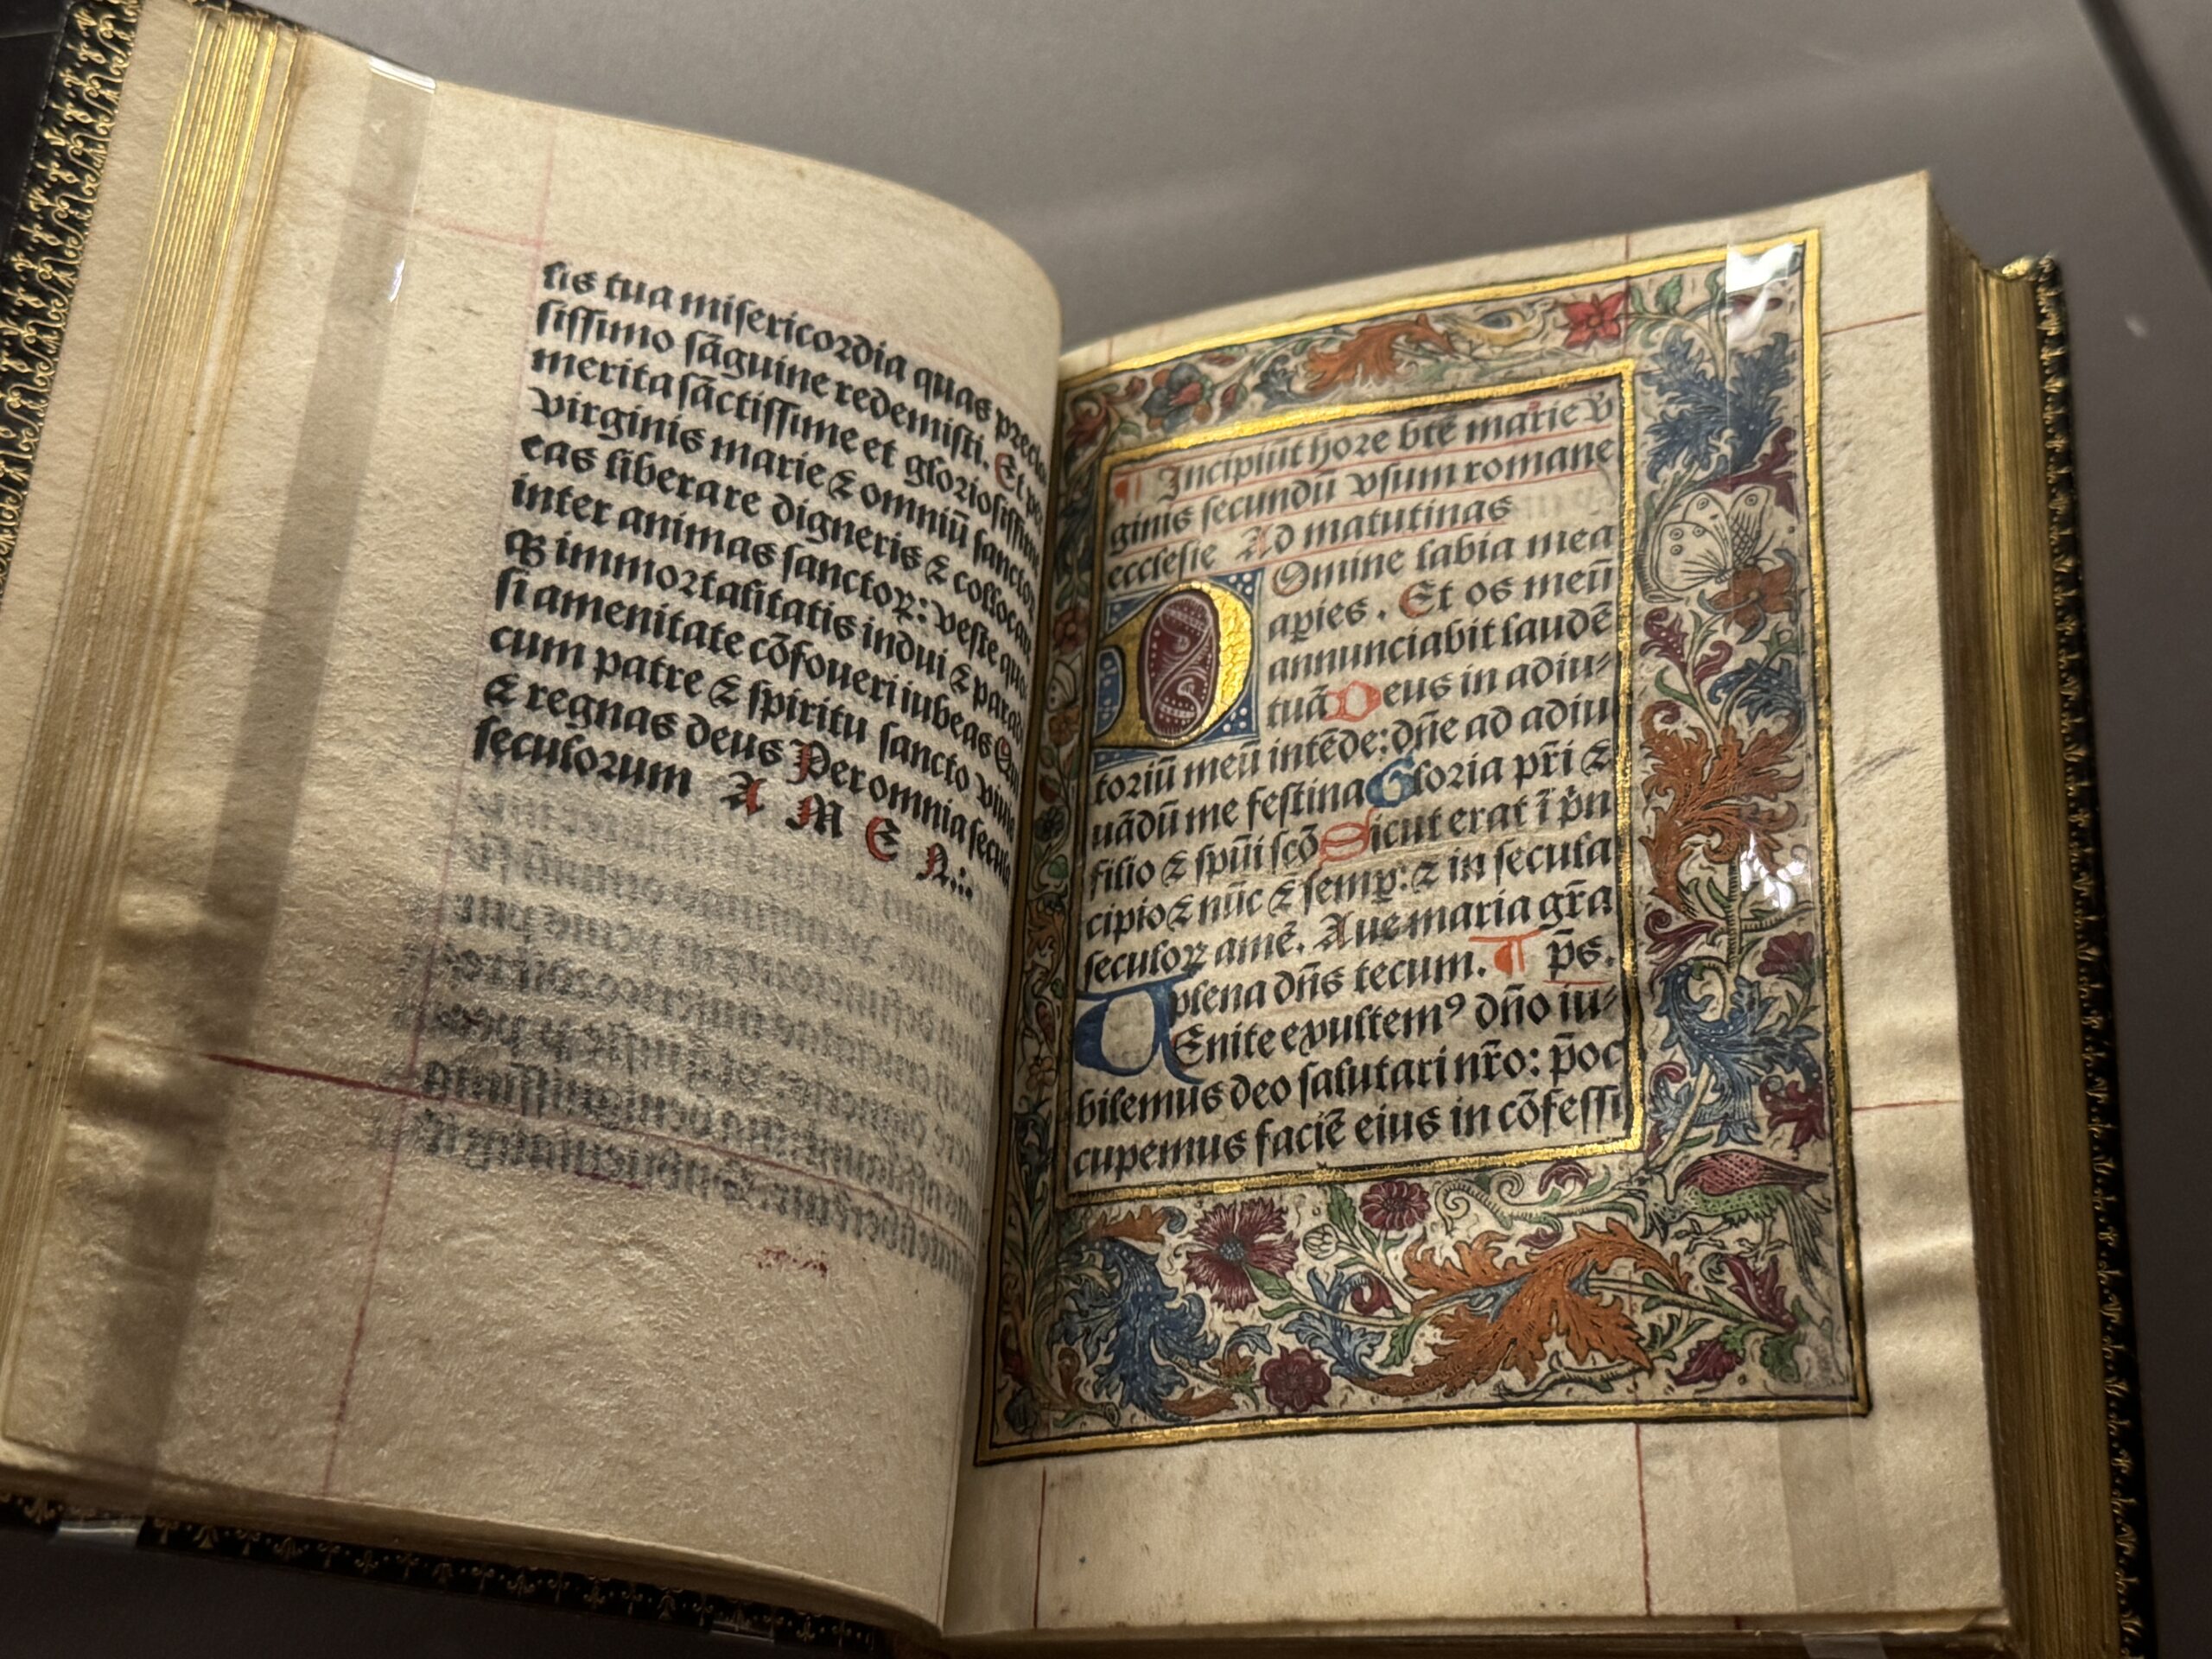 lis tua misericordia quas precio
sissimo sāguine redemisti. Et per
merita sāctissime et gloriosissime
virginis marie & omniū sanctor
eas liberare digneris & collocare
inter animas sanctoꝝ: veste quo
immortalitatis indui & paradi
si amenitate cōfoueri iubeas Qui
cum patre & spiritu sancto viuis
& regnas deus Per omnia secula
seculorum A M E N.:.
¶ Incipiūt hore btē marie v
ginis secundū vsum romane
ecclesie Ad matutinas
Domine labia mea
apies. Et os meū
annunciabit laudē
tuā Deus in adiu⸗
toriū meū intēde: dn̄e ad adiu
uādū me festina Gloria pr̄i &
filio & spūi scō Sicut erat ī p̄n
cipio & nūc & semꝑ: & in secula
seculoꝝ amē. Aue maria gr̄a
plena dn̄s tecum. ¶ p̄s.
Uenite exultemꝰ dn̄o iu⸗
bilemus deo salutari nr̄o: p̄oc
cupemus faciē eius in cōfessi